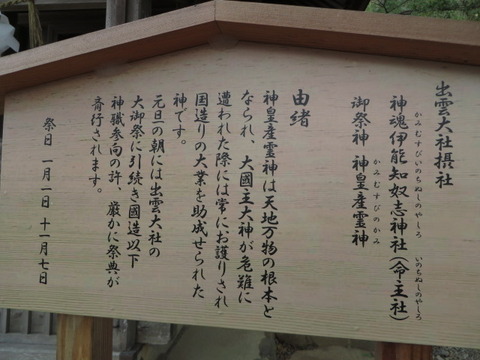 出雲大社摂社
神魂伊能知奴志神社(命主社)
かみむすびいのちぬしのやしろ
いのちぬしのやしろ
御祭神 神皇産霊神
かみむすびのかみ
由緒
神皇産霊神は天地万物の根本と
なられ、大國主大神が危難に
遭われた際には常にお護りされ
国造りの大業を助成せられた
神です。
元旦の朝には出雲大社の
大御祭に引続き國造以下
神職参向の許、厳かに祭典が
斎行されます。
祭日 一月一日 十一月七日